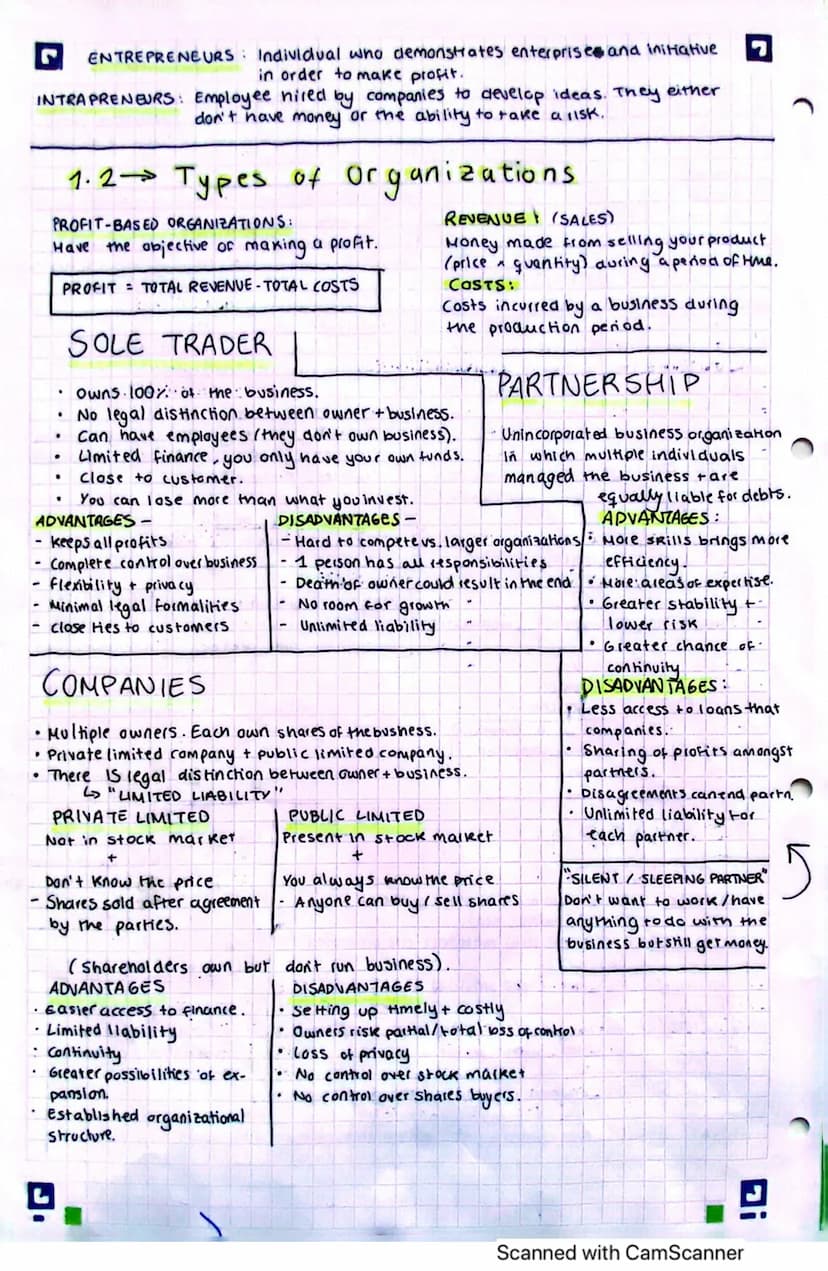 ENTREPRENEURS: Individual who demonstrates enterprise and initiative
in order to make profit.
INTRAPRENEURS: Employee hired by companies to develop ideas. They either
don't have money or the ability to take a risk.
1.2→ Types of Organizations
PROFIT-BASED ORGANIZATIONS:
Have the objective of making a profit.
PROFIT = TOTAL REVENUE - TOTAL COSTS
REVENUE: (SALES)
Money made from selling your product
(price × quantity) during a period of time.
COSTS:
Costs incurred by a business during
the production period.
SOLE TRADER
• Owns 100% of the business.
• No legal distinction between owner + business.
• Can have employees (they don't own business).
• Limited finance, you only have your own funds.
• Close to customer.
• You can lose more than what you invest.
ADVANTAGES -
- Keeps all profits
- Complete control over business
- Flexibility + privacy
- Minimal legal formalities
- Close ties to customers
DISADVANTAGES -
- Hard to compete vs. larger organizations
- 1 person has all responsibilities
- Death of owner could result in the end
- No room for growth
- Unlimited liability
PARTNERSHIP
Unincorporated business organization
in which multiple individuals
managed the business + are
equally liable for debts.
ADVANTAGES:
• More skills brings more
efficiency.
• More areas of expertise.
• Greater stability +
lower risk
• Greater chance of
continuity
DISADVANTAGES:
• Less access to loans that
companies.
• Sharing of profits amongst
partners.
• Disagreements can end partn.
• Unlimited liability for
each partner.
"SILENT / SLEEPING PARTNER"
Don't want to work / have
anything to do with the
business but still get money.
COMPANIES
• Multiple owners. Each own shares of the business.
• Private limited company + public limited company.
• There IS legal distinction between owner + business.
↳ "LIMITED LIABILITY"
PRIVATE LIMITED
Not in stock market
+
Don't know the price
- Shares sold after agreement
by the parties.
PUBLIC LIMITED
Present in stock market
+
You always know the price
- Anyone can buy / sell shares
(Shareholders own but don't run business).
ADVANTAGES
• Easier access to finance.
• Limited liability
• Continuity
• Greater possibilities of ex-
pansion.
• Established organizational
structure.
DISADVANTAGES
• Setting up timely + costly
• Owners risk partial/total loss of control
• Loss of privacy
• No control over stock market
• No control over shares buyers.
Scanned with CamScanner